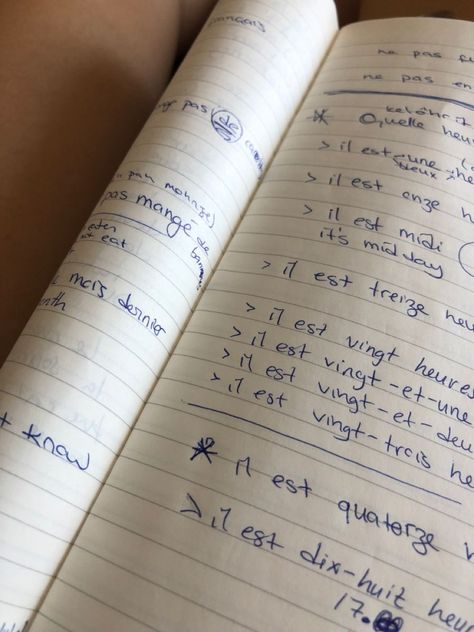 français
pas de
pas mangé de
eat
mais dernier
know
ne pas
ne pas en
* Quelle heu
> il est une he
deux
> il est enze h
> il est midi
it's midday
> il est treize heu
> il est vingt heures
> il est vingt-et-une
> il est vingt-et-deu
> il est vingt-trais he
* il est quatorze
> il est dix-huit heu
17.